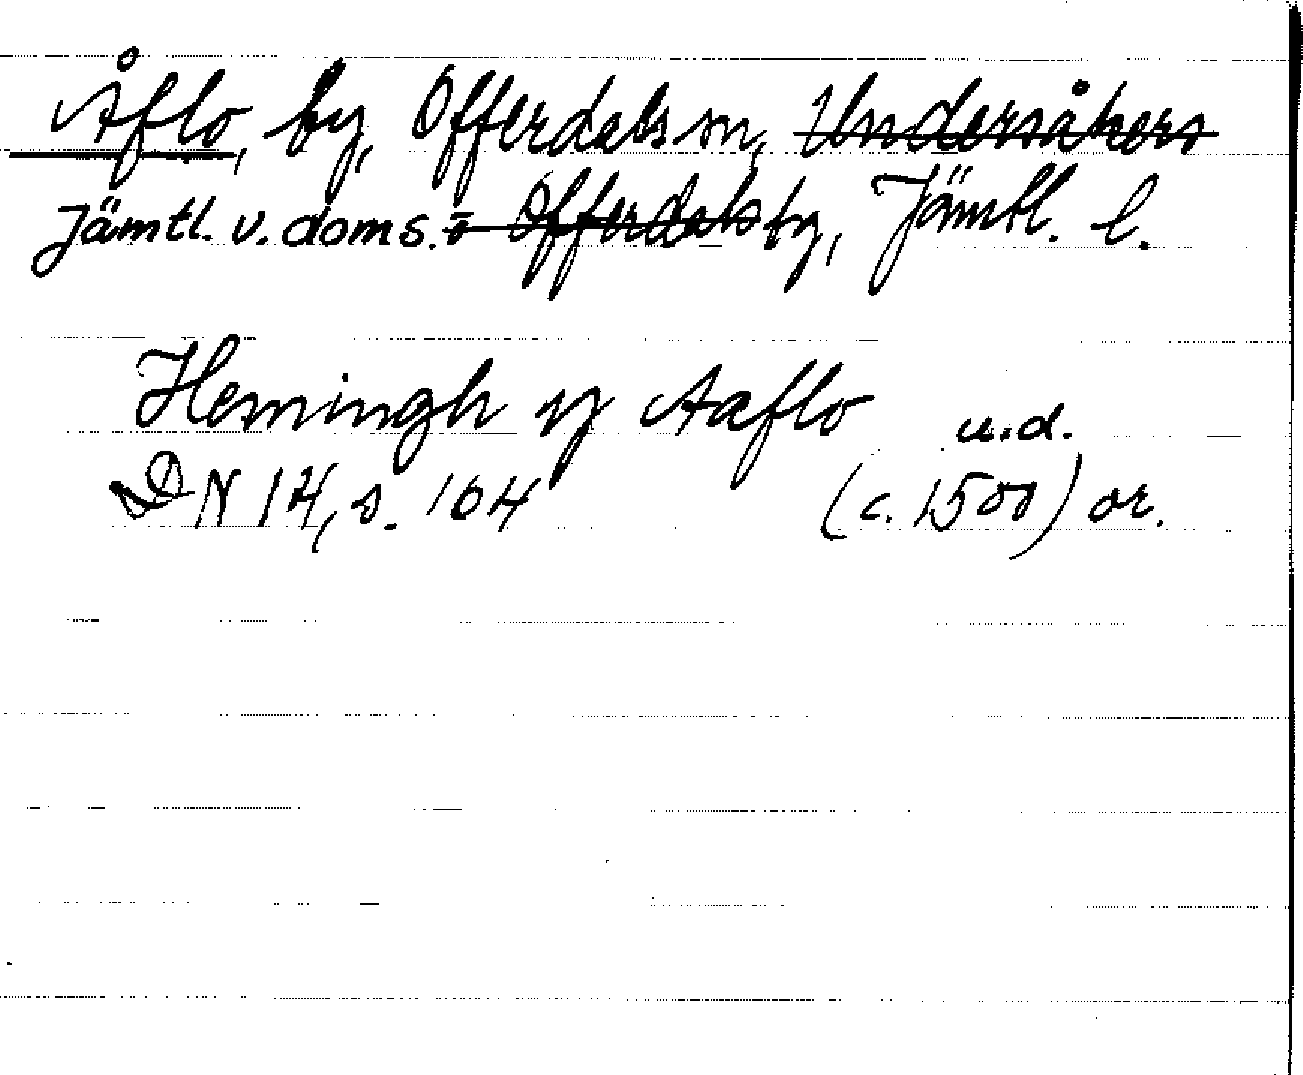 Åflo, by, Offerdals sn, Undersåkers
Jämtl. v. doms. o Offerdals tg, Jämtl. l.
Hemingh ij Aaflo u.d.
DN 14, s. 164 (c. 1500) or.